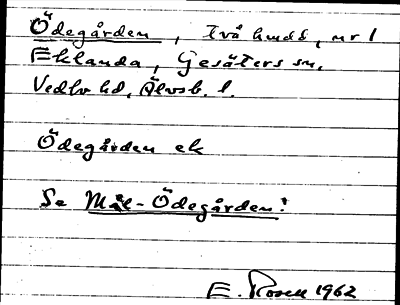 Ödegården, två hmd, nr 1
Eklanda, Gesäters sn,
Vedbo hd, Älvsb. l.
Ödegården ek
Se Mål-Ödegården!
E. Rosell 1962